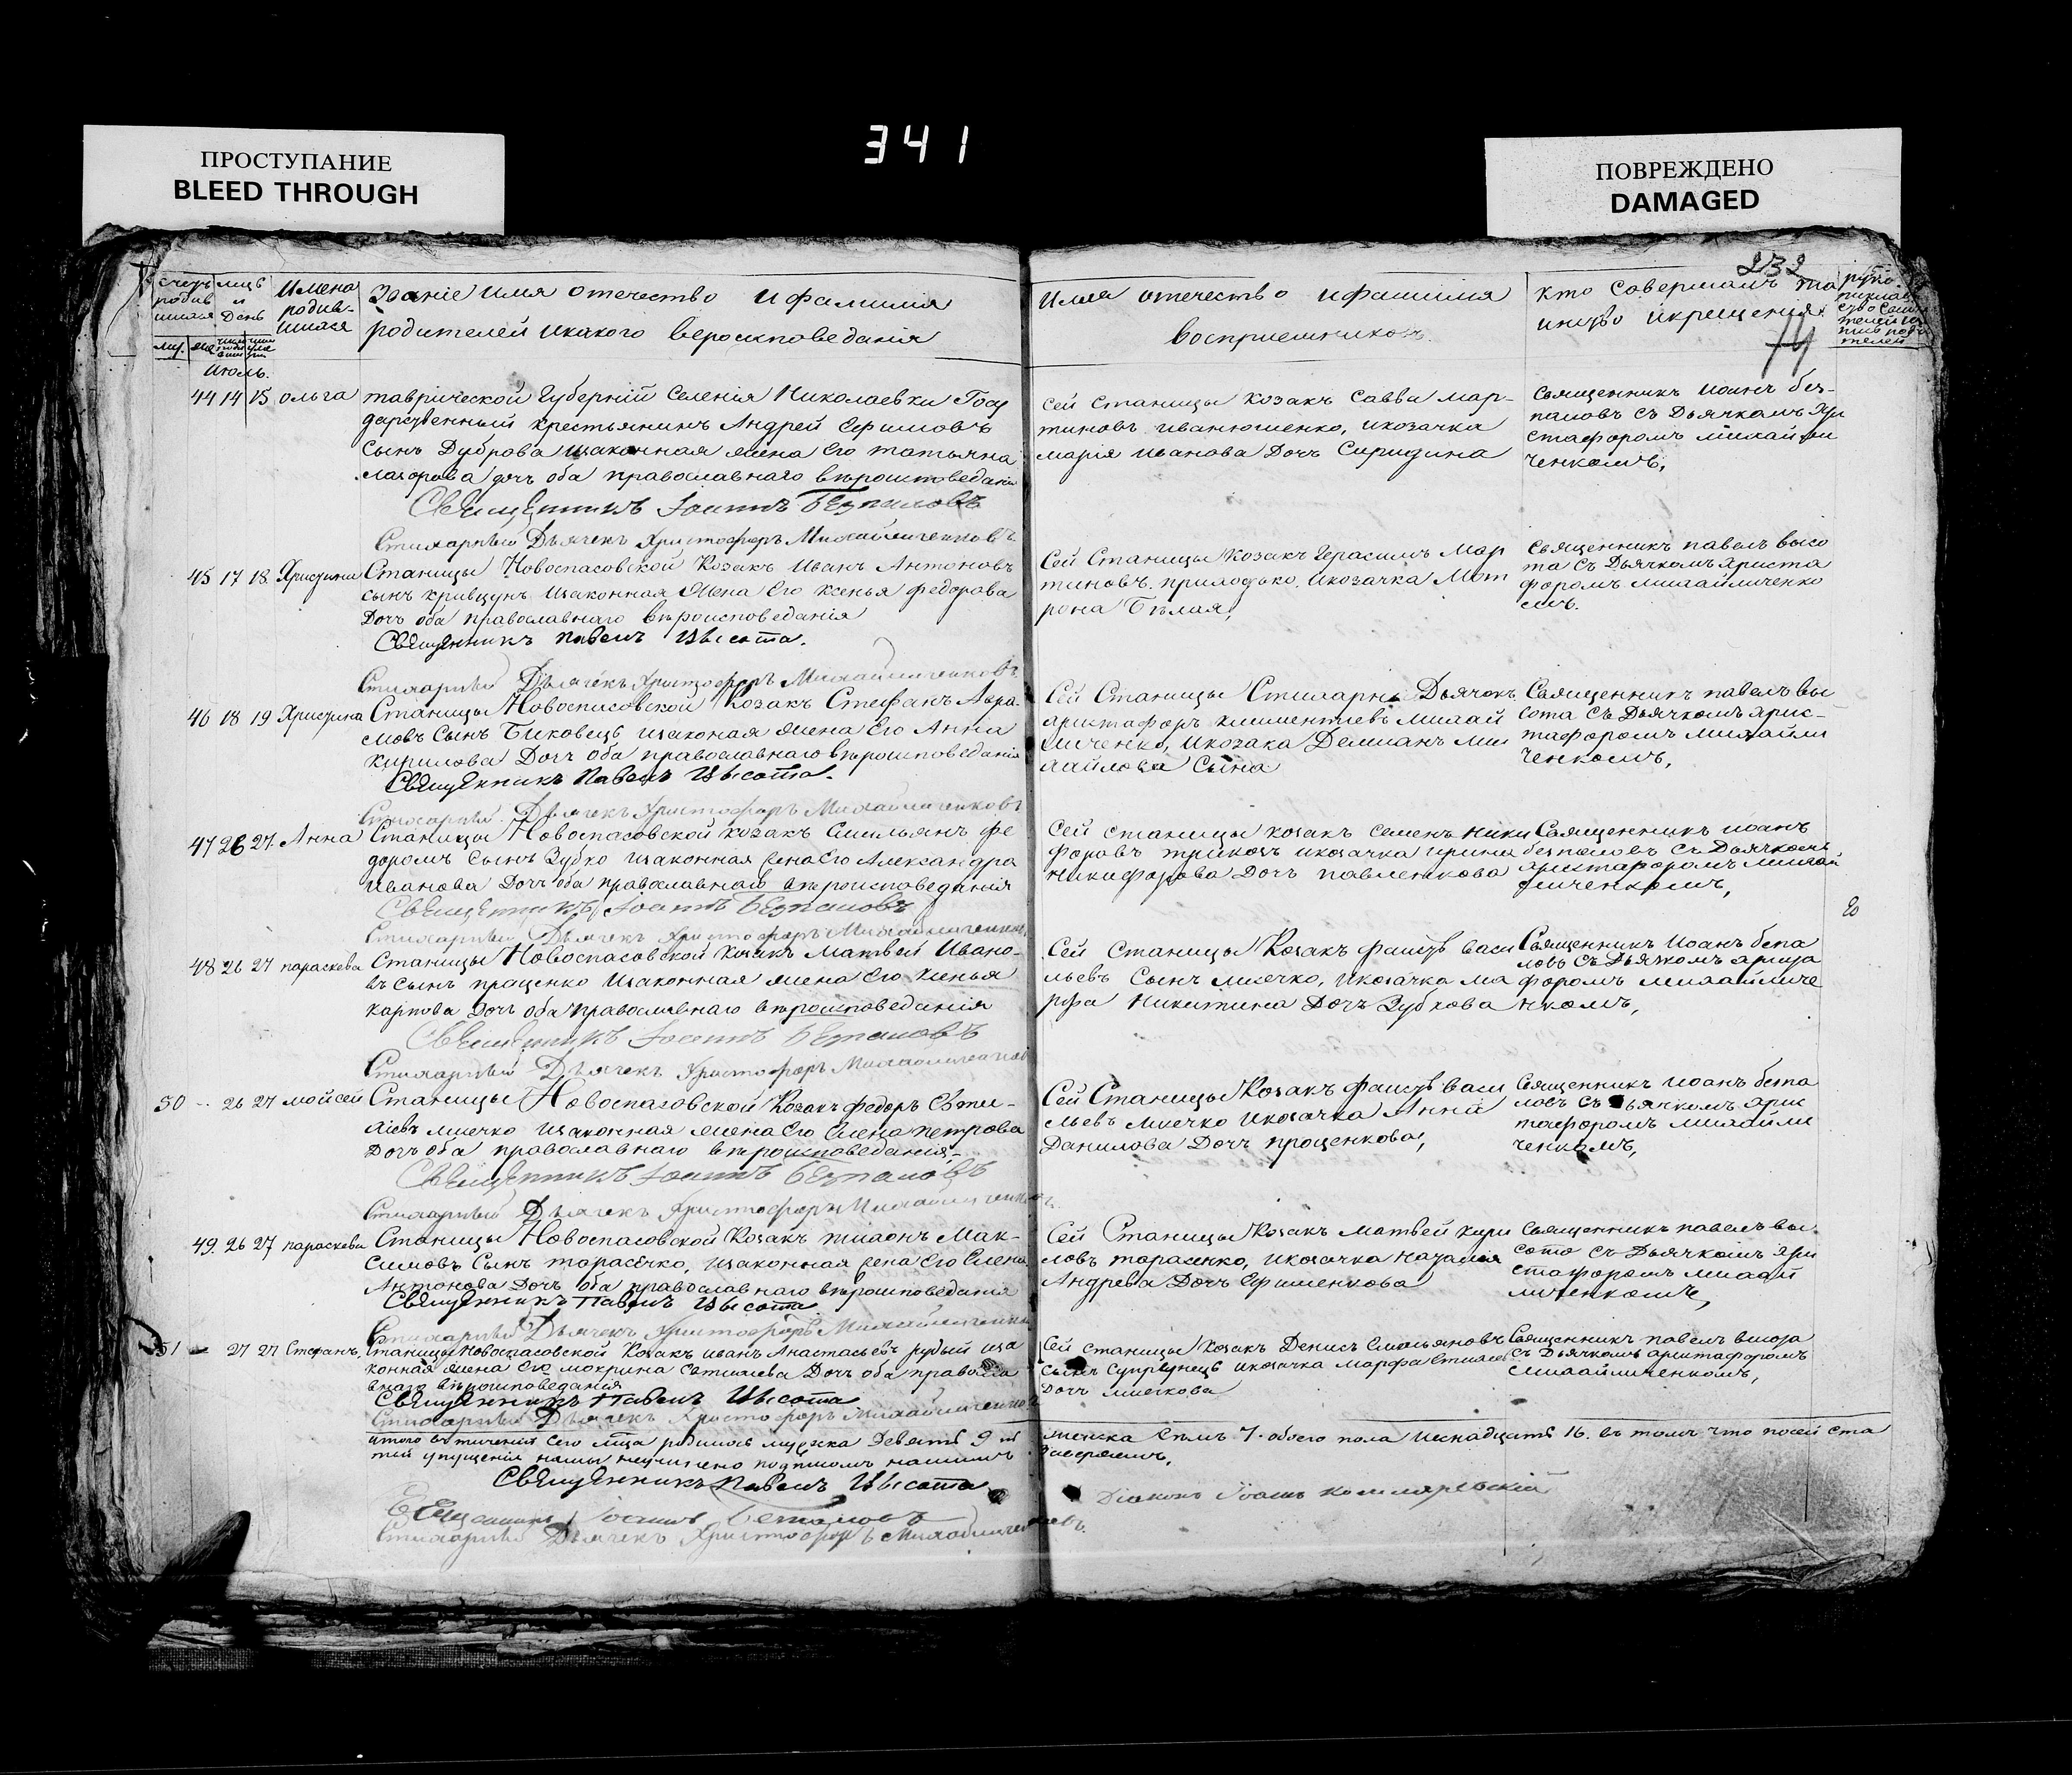 ПРОСТУПАНИЕ
BLEED THROUGH
341
ПОВРЕЖДЕНО
DAMAGED
232
74
Имена
родив-
шихся
Званіе имя отечество и фамилія
родителей икакого вероисповеданія
Имя отечество ифамилія
восприемниковъ.
кто совершалъ та
инство икрещенія
Июль.
44 14 15 ольга
таврической Губерній Селенія Николаевки Госу
дарственный крестьянинъ Андрей Ефимовъ
Сынъ Дуброва изаконная жена Его татьяна
дочъ оба православнаго вѣроисповеданія
Священникъ Іоаннъ Безпаловъ
Стихарный Дьячекъ Христофоръ Михайличенковъ
Сей Станицы Козакъ Савва Мар-
тиновъ иванюшенко, икозачка
марія иванова Дочъ Спиридина
Священникъ иоанъ без-
паловъ съ Дьячкомъ хри
стафоромъ михайли
ченкомъ,
45 17 18 Христина
Станицы Новоспасовской Козакъ Иванъ Антоновъ
сынъ кривцунъ изаконная жена Его ксенья федорова
Дочъ оба православнаго вѣроисповеданія
Священникъ Павелъ Высота.
Стихарный Дьячекъ Христофоръ Михайличенковъ
Сей Станицы Козакъ Герасимъ Мар
тиновъ прилодько, икозачка Мот
рона Бѣлая,
Священникъ павелъ высо
та съ Дьячкомъ христа
форомъ михайличенко
мъ.
46 18 19 Христина
Станицы Новоспасовской Козакъ Стефанъ Авра
мовъ Сынъ Биковецъ изаконая жена Его Анна
кирилова Дочъ оба православнаго вѣроисповеданія
Священникъ Павелъ Высота.
Стихарный Дьячекъ Христофоръ Михайличенковъ
Сей Станицы Стихарны Дьячокъ
христафоръ климентіевъ михай
личенко, икозака Демианъ ми
хайлова Сына
Священникъ павелъ вы
сота съ Дьячкомъ хрис-
тафоромъ михайли
ченкомъ,
47 26 27 Анна
Станицы Новоспасовской козакъ Емильянъ фе
доромъ Сынъ Зубко изаконная жена Его Александра
Иванова Дочъ оба православнаго вѣроисповеданія
Священникъ Іоаннъ Безпаловъ
Стихарный Дьячекъ Христофоръ Михайличенковъ
Сей станицы козакъ семенъ ники
форовъ икозачка ирина
никифорова Дочъ павленкова
Священникъ иоанъ
безпаловъ съ Дьячкомъ
христафоромъ михай
личенкомъ,
48 26 27 параскева
Станицы Новоспасовской козакъ Матвей Ивано-
въ Сынъ проценко изаконная жена Его ксенья
карпова Дочъ оба православнаго вѣроисповеданія
Священникъ Іоаннъ Безпаловъ
Стихарный Дьячекъ Христофоръ Михайличенковъ
Сей Станицы Козакъ фаистъ васи
льевъ Сынъ мисечко, икозачка ма
рфа Никитина Дочъ Зубкова
Священникъ Иоанъ безпа
ловъ съ Дьячкомъ христа
форомъ михайличе
нкомъ,
50 -- 26 27 мойсей
Станицы Новоспасовской Козакъ федоръ
мисечко изаконная жена Его Елена петрова
Дочъ оба православнаго вѣроисповеданія,
Священникъ Іоаннъ Безпаловъ
Стихарный Дьячекъ Христофоръ Михайличенковъ
Сей Станицы Козакъ фаистъ васи
льевъ мисечко икозачка Анна
Данилова Дочъ проценкова,
Священникъ иоанъ безпа
ловъ съ Дьячкомъ хрис
тафоромъ михайли
ченкомъ,
49. 26 27 параскева
Станицы Новоспасовской Козакъ тихонъ Мак-
симовъ Сынъ тарасенко, изаконная жена Его Елена
Антонова Дочъ оба православнаго вѣроисповеданія
Священникъ Павелъ Высота
Стихарный Дьячекъ Христофоръ Михайличенковъ
Сей Станицы Козакъ матвей кири
ловъ тарасенко, икозачка наталія
Андрева Дочъ Ефименкова
Священникъ павелъ вы
сота съ Дьячкомъ хри
стафоромъ михай
личенкомъ,
51 -- 27 27 Стефанъ,
Станицы Новоспасовской Козакъ иванъ Анастасьевъ рудый иза
конная жена Его мокрина Дочъ оба правосла
внаго вѣроисповеданія
Священникъ Павелъ Высота
Стихарный Дьячекъ Христофоръ Михайличенковъ
Сей станицы Козакъ Денисъ Емельяновъ
сынъ Супрунецъ икозачка марфа
Дочъ мисечкова
Священникъ павелъ высота
съ Дьячкомъ христафоромъ
михайличенкомъ,
итого въ теченія Сего мѣца родилось мужеска Девять 9 женска Семъ 7. обоего пола Шеснадцать 16. въ томъ что посей ста
тьи упущенія нами неучинено подписомъ нашимъ
Священникъ Павелъ Высота
Діаконъ Іоаннъ
Священникъ Іоаннъ Безпаловъ
Стихарный Дьячекъ Христофоръ Михайличенковъ.